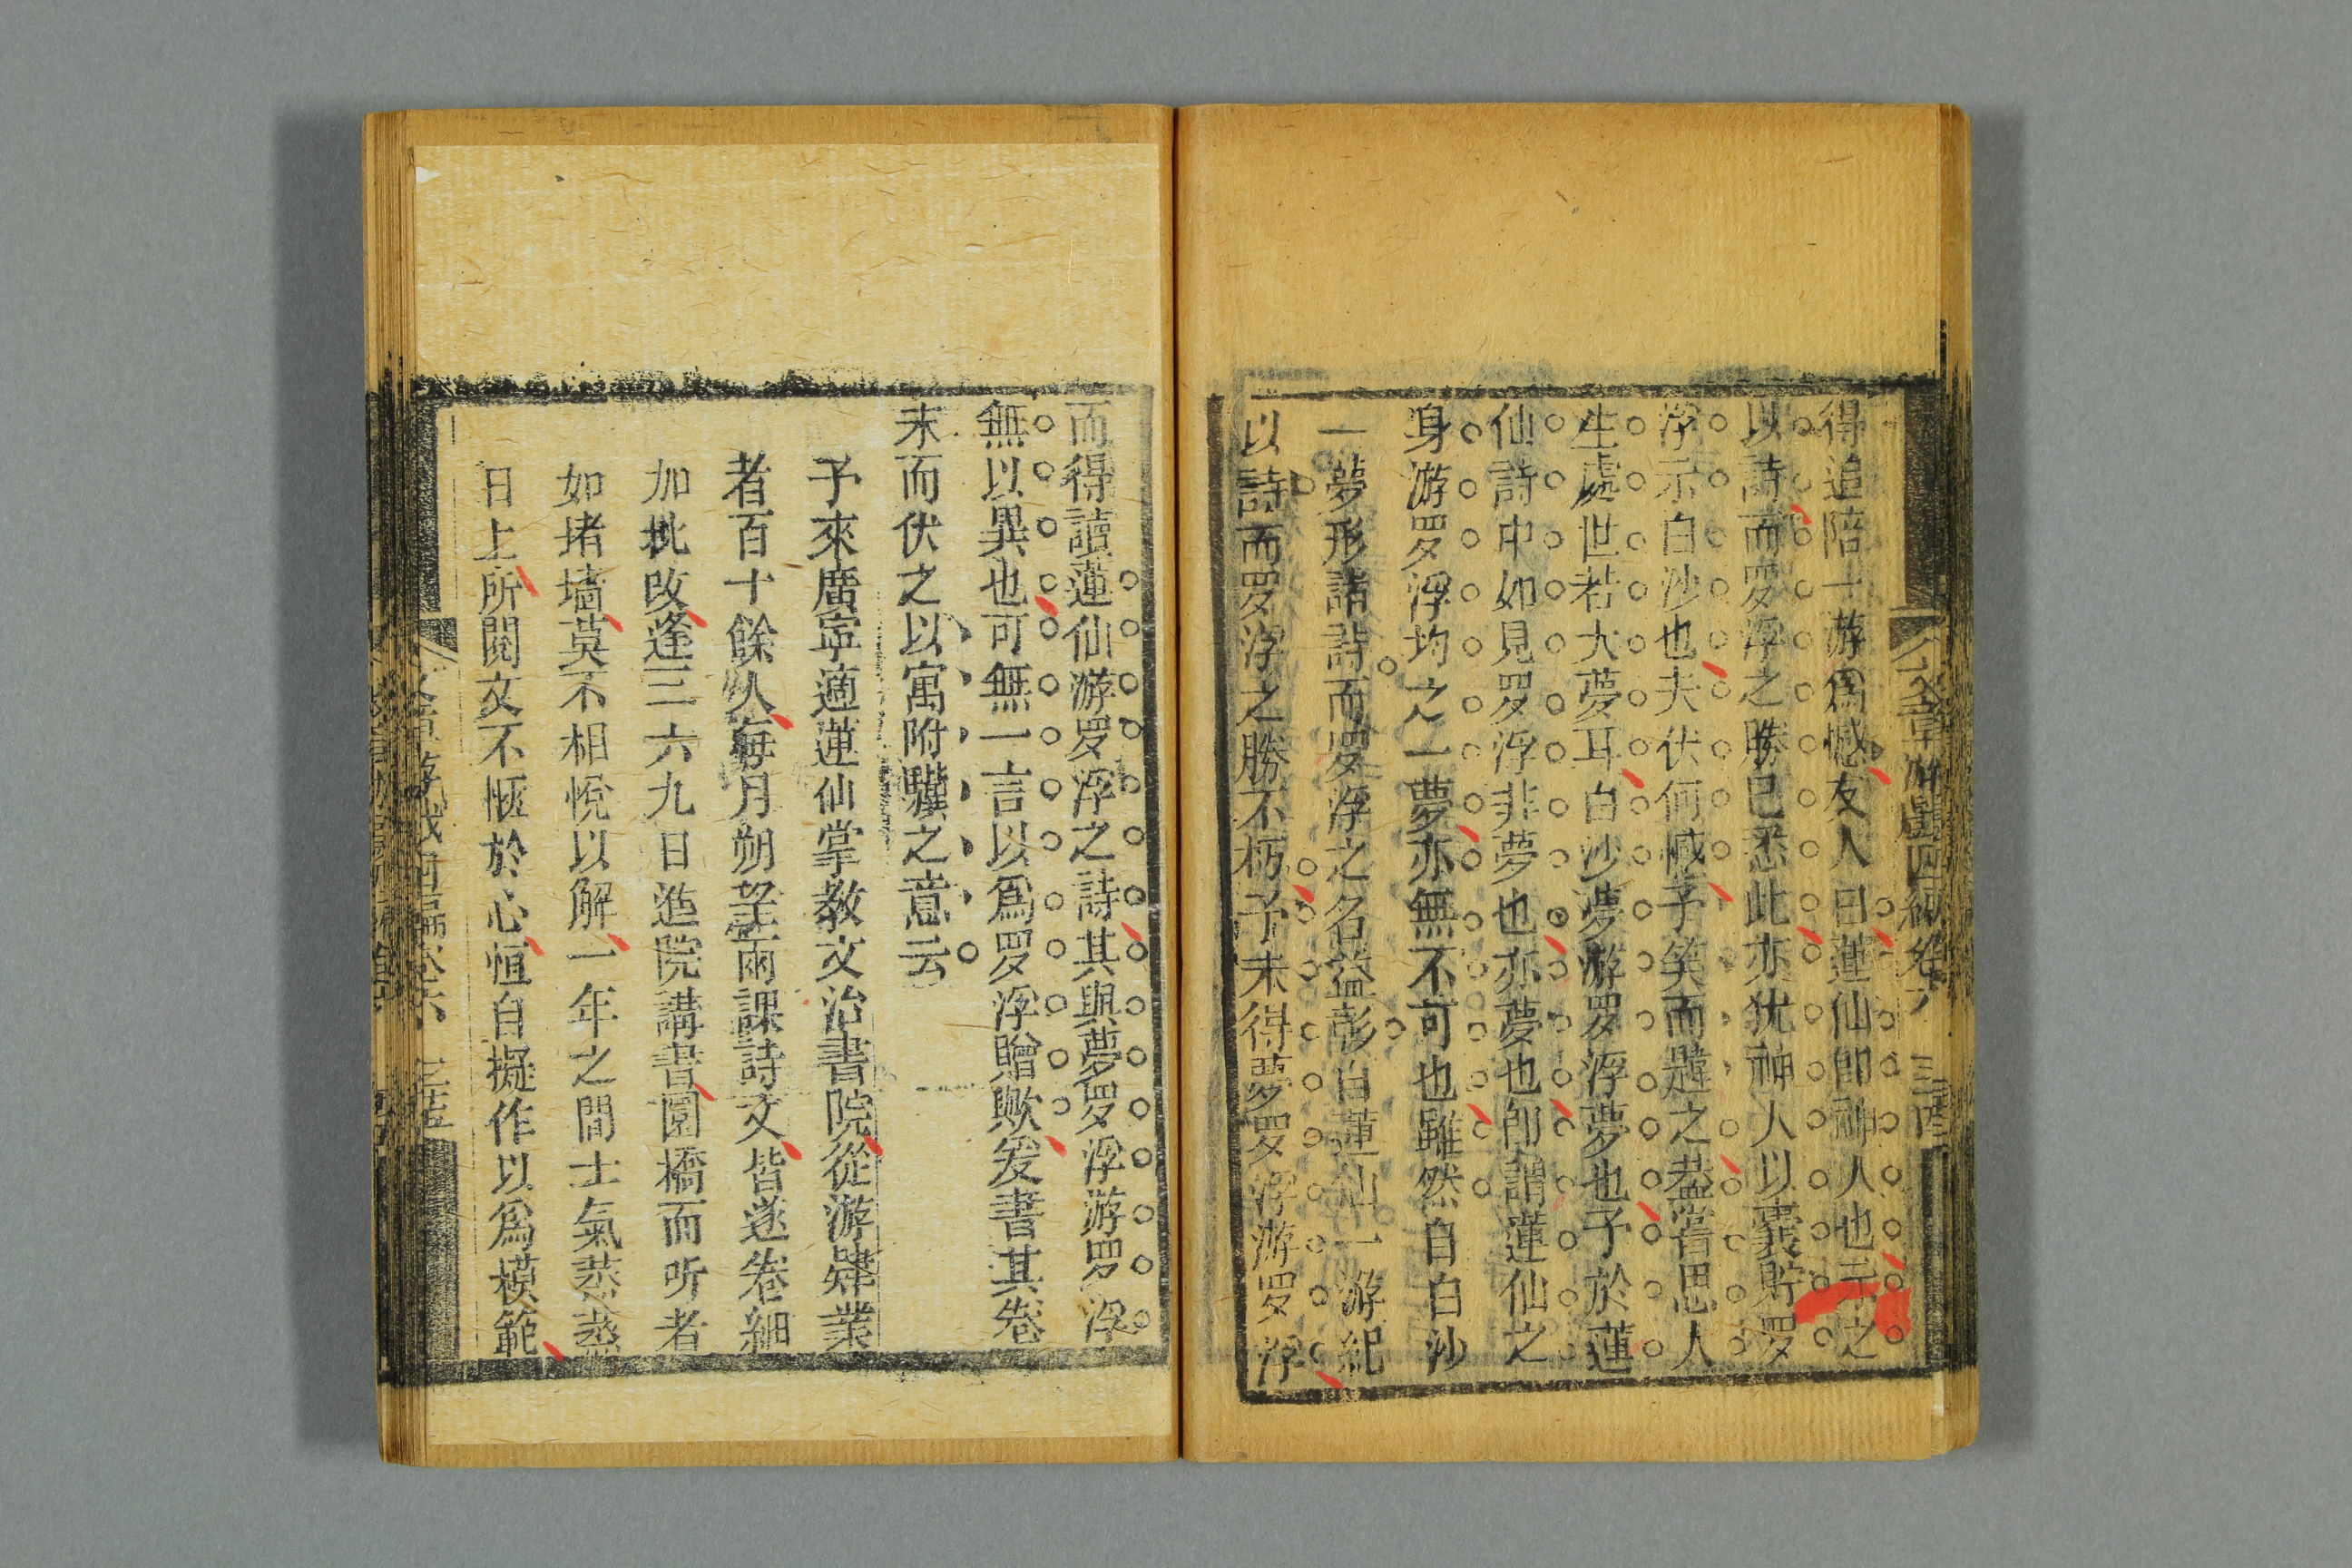 得追陪一游為憾友人曰蓮仙即神人也示之
以詩而罗浮之勝已悉此亦犹神人以囊貯罗
浮示白沙也夫伏何憾予笑而韙之葢嘗思人
生處世若大夢耳白沙夢游罗浮夢也予於蓮
仙詩中如見罗浮非夢也亦夢也即謂蓮仙之
身游罗浮均之一夢亦無不可也雖然自白沙
一夢形諸詩而罗浮之名益彰自蓮仙一游紀
以詩而罗浮之勝不朽予未得夢罗浮游罗浮
而得讀蓮仙游罗浮之詩其與夢罗浮游罗浮
無以異也可無一言以為罗浮贈歟爰書其卷
末而伏之以寓附驥之意云
予來廣寧適蓮仙掌教文治書院從游肄業
者百十餘人每月朔望兩課詩文皆逐卷細
加批改逢三六九日進院講書圜橋而听者
如堵墻莫不相悅以解一年之間士氣蒸蒸
日上所閱文不愜於心恒自擬作以為模範